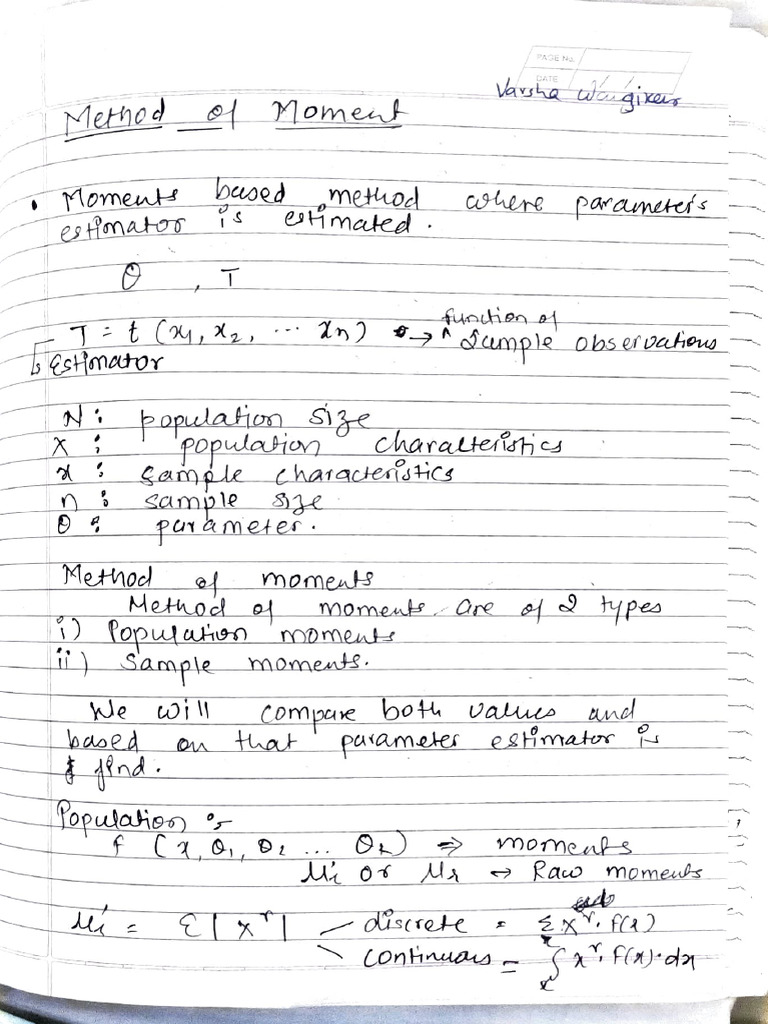 PAGE No.
DATE
Varsha Waugikar
Method of Moment
• Moments based method where parameter's
estimator is estimated.
θ , T
T = t (x1, x2, ... xn) → function of sample observations
↳ Estimator
N : population size
X : population characteristics
x : sample characteristics
n : sample size
θ : parameter.
Method of moments
Method of moments are of 2 types
i) Population moments
ii) Sample moments.
We will compare both values and
based on that parameter estimator is
find.
Population :-
f (x, θ1, θ2 ... θk) ⇒ moments
μr' or μr → Raw moments
μr' = E|x^r| — discrete = Σ x^r. f(x)
continuous = ∫ x^r. f(x).dx